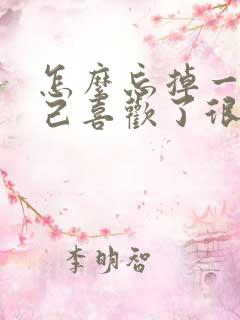 怎麼忘掉一
己喜歡了很
李明智